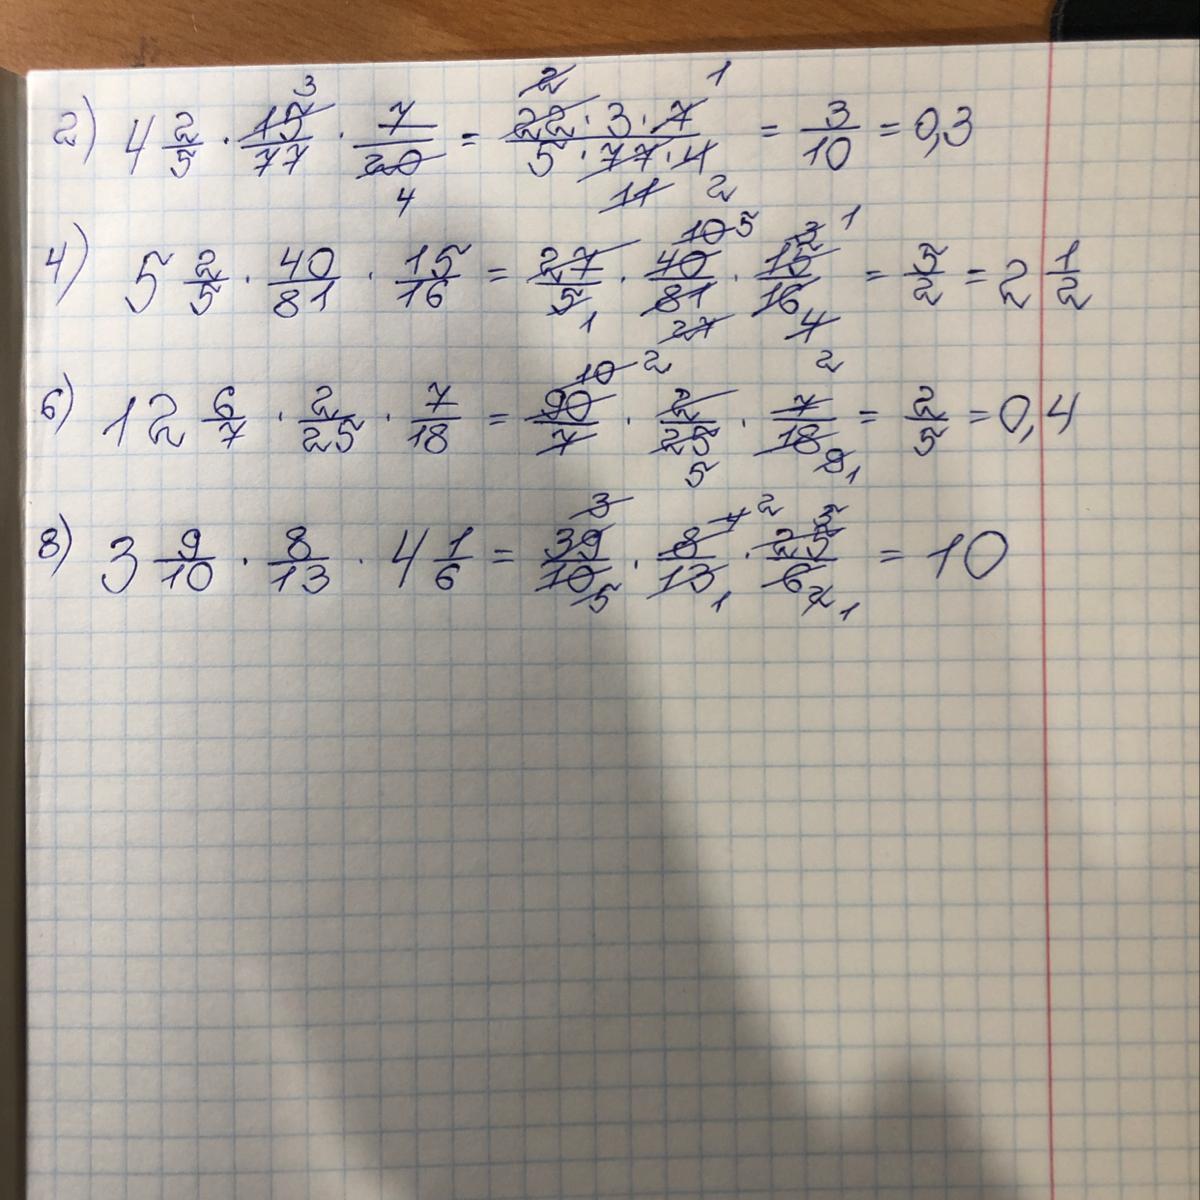 2) 4 2/5 · 15/77 · 7/20 = 22·3·7/5·77·4 = 3/10 = 0,3
4) 5 2/5 · 40/81 · 15/16 = 27/5 · 40/81 · 15/16 = 5/2 = 2 1/2
6) 12 6/7 · 2/25 · 7/18 = 90/7 · 2/25 · 7/18 = 2/5 = 0,4
8) 3 9/10 · 8/13 · 4 1/6 = 39/10 · 8/13 · 25/6 = 10